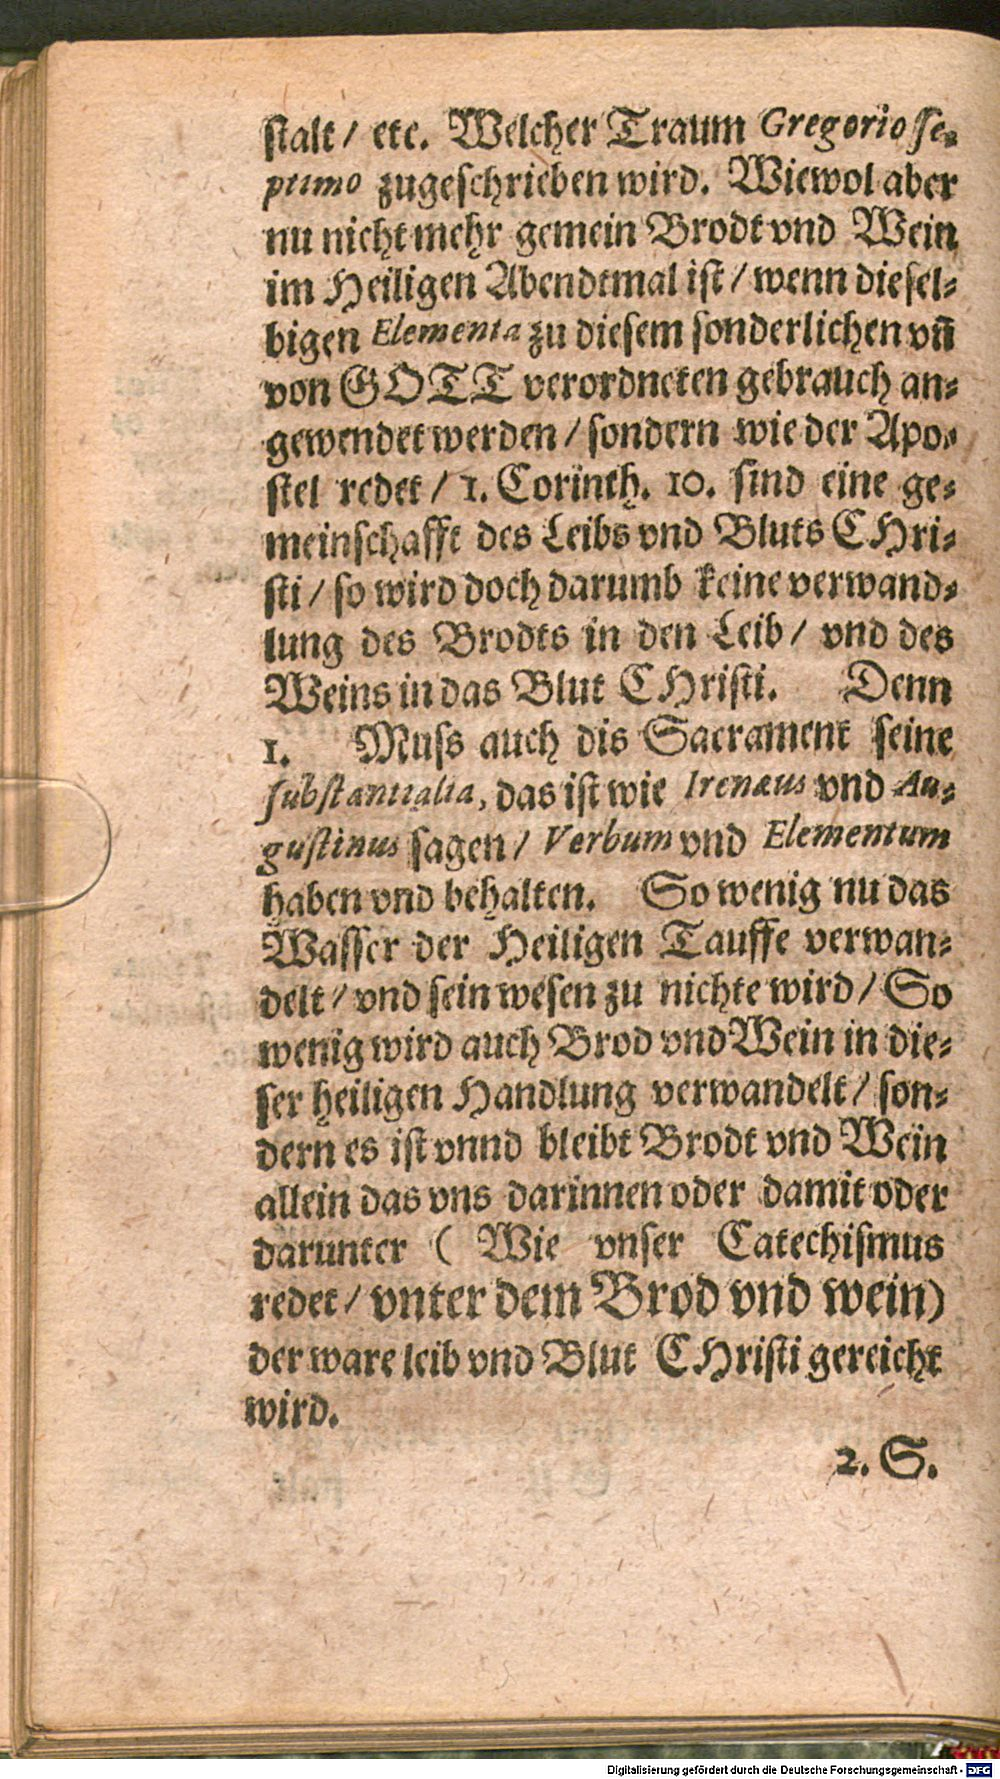 stalt / etc. Welcher Traum Gregorio se-
ptimo zugeschrieben wird. Wiewol aber
nu nicht mehr gemein Brodt vnd Wein
im Heiligen Abendtmal ist / wenn diesel-
bigen Elementa zu diesem sonderlichen vn̄
von GOTT verordneten gebrauch an-
gewendet werden / sondern wie der Apo-
stel redet / 1. Corinth. 10. sind eine ge-
meinschafft des Leibs vnd Bluts CHri-
sti / so wird doch darumb keine verwand-
lung des Brodts in den Leib / vnd des
Weins in das Blut CHristi. Denn
1. Muss auch dis Sacrament seine
substantialia, das ist wie Irenæus vnd Au-
gustinus sagen / Verbum vnd Elementum
haben vnd behalten. So wenig nu das
Wasser der Heiligen Tauffe verwan-
delt / vnd sein wesen zu nichte wird / So
wenig wird auch Brod vnd Wein in die-
ser heiligen Handlung verwandelt / son-
dern es ist vnnd bleibt Brodt vnd Wein
allein das vns darinnen oder damit oder
darunter ( Wie vnser Catechismus
redet / vnter dem Brod vnd wein)
der ware leib vnd Blut CHristi gereicht
wird.
2. S.
Digitalisierung gefördert durch die Deutsche Forschungsgemeinschaft - DFG